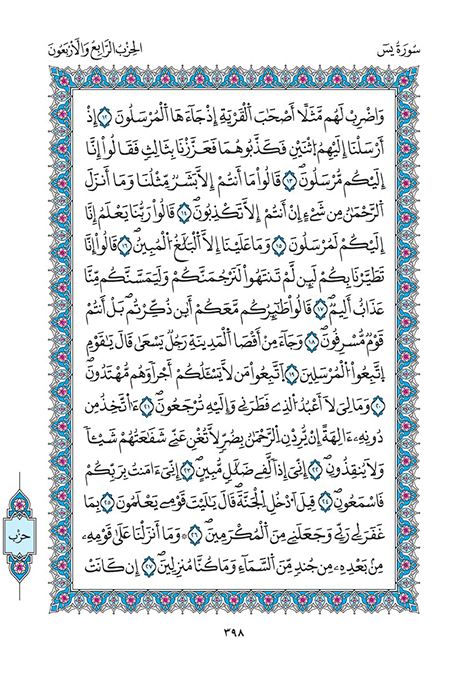 سُورَةُ يسٓ
الحِزْبُ الرَّابِعُ وَالَارْبَعُونَ
وَاضْرِبْ لَهُم مَّثَلًا اَصْحَٰبَ الْقَرْيَةِ إِذْ جَآءَهَا الْمُرْسَلُونَ ١٢ إِذَ
اَرْسَلْنَآ إِلَيْهِمُ اثْنَيْنِ فَكَذَّبُوهُمَا فَعَزَّزْنَا بِثَالِثٍ فَقَالُوٓاْ إِنَّآ
إِلَيْكُم مُّرْسَلُونَ ١٣ قَالُواْ مَآ أَنتُمُۥٓ إِلَّا بَشَرٌ مِّثْلُنَا وَمَآ أَنزَلَ
الرَّحْمَٰنُ مِن شَےْءٍ اِنَ اَنتُمُۥٓ إِلَّا تَكْذِبُونَ ١٤ قَالُواْ رَبُّنَا يَعْلَمُ إِنَّآ
إِلَيْكُمْ لَمُرْسَلُونَ ١٥ وَمَا عَلَيْنَآ إِلَّا اَلْبَلَٰغُ الْمُبِينُ ١٦ قَالُوٓاْ إِنَّا
تَطَيَّرْنَا بِكُمْ لَئِن لَّمْ تَنتَهُواْ لَنَرْجُمَنَّكُمْ وَلَيَمَسَّنَّكُم مِّنَّا
عَذَابٌ اَلِيمٌ ١٧ قَالُواْ طَٰٓئِرُكُم مَّعَكُمُۥٓ أَيِن ذُكِّرْتُم بَلَ اَنتُمْ
قَوْمٌ مُّسْرِفُونَ ١٨ وَجَآءَ مِنَ اَقْصَا اَلْمَدِينَةِ رَجُلٌ يَسْعَىٰ قَالَ يَٰقَوْمِ
اِتَّبِعُواْ الْمُرْسَلِينَ ١٩ اَتَّبِعُواْ مَن لَّا يَسْـَٔلُكُمُۥٓ أَجْرًا وَهُم مُّهْتَدُونَ
٢٠ وَمَالِيَ لَآ أَعْبُدُ الذِے فَطَرَنِے وَإِلَيْهِ تُرْجَعُونَ ٢١ ءَآتَّخِذُ مِن
دُونِهِۦٓ ءَالِهَةً اِنْ يُّرِدْنِ الرَّحْمَٰنُ بِضُرٍّ لَّا تُغْنِ عَنِّے شَفَٰعَتُهُمْ شَيْـًٔا
وَلَا يُنقِذُونِ ٢٢ إِنِّيَ إِذًا لَّفِے ضَلَٰلٍ مُّبِينٍ ٢٣ اِنِّيَ ءَامَنتُ بِرَبِّكُمْ
فَاسْمَعُونِ ٢٤ قِيلَ اَدْخُلِ الْجَنَّةَ قَالَ يَٰلَيْتَ قَوْمِے يَعْلَمُونَ ٢٥ بِمَا
غَفَرَ لِے رَبِّے وَجَعَلَنِے مِنَ الْمُكْرَمِينَ ٢٦ وَمَآ أَنزَلْنَا عَلَىٰ قَوْمِهِۦ
مِنۢ بَعْدِهِۦ مِن جُندٍ مِّنَ السَّمَآءِ وَمَا كُنَّا مُنزِلِينَ ٢٧ إِن كَانَتِ
حزب
٣٩٨